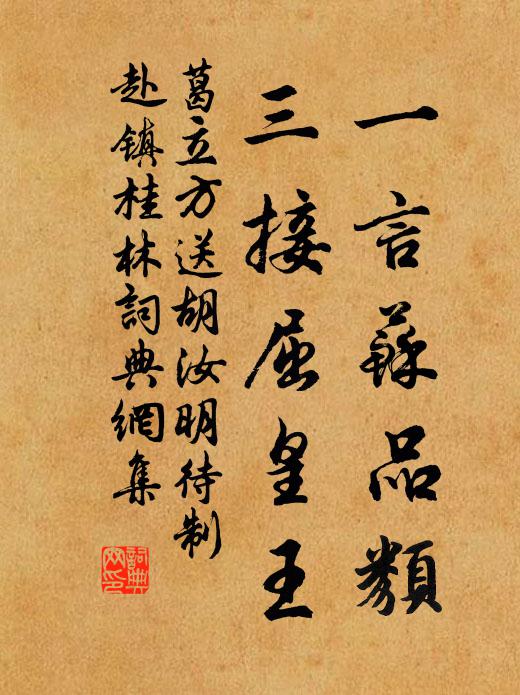 一言蘇品類
三接屈皇王
葛立方送胡汝明待制
赴镇桂林詞典網集
詞典
网印